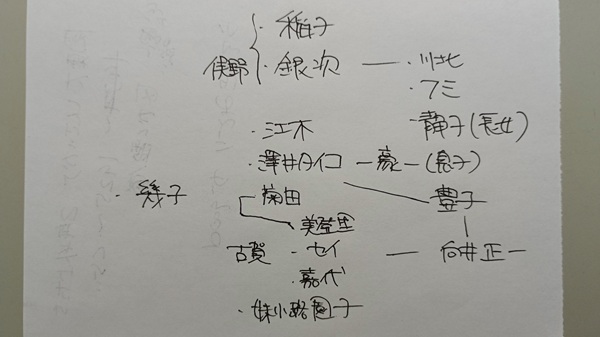 ・稲子
俣野 ・銀次 ― ・川北
・フミ
・江木 ・静子(長女)
・澤井タイコ ― 豪一(息子)
・幾子 菊田 豊子
美登里
古賀 ― セイ ― 向井正一
・嘉代
・姉小路圓子